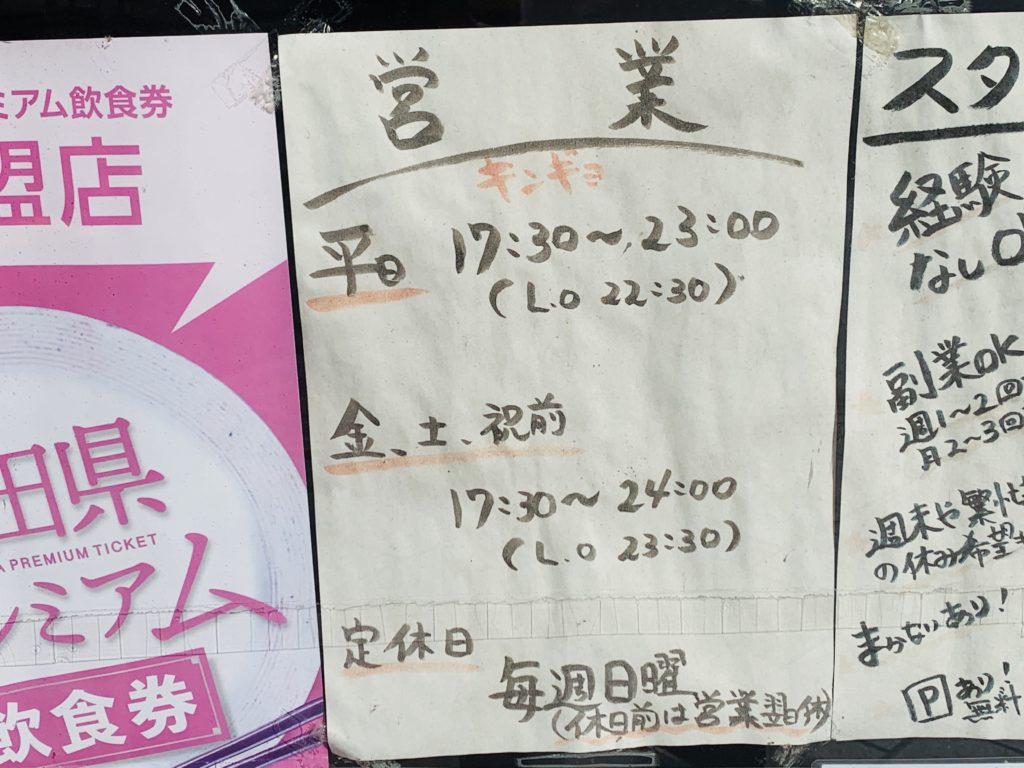 ミアム飲食券
盟店
田県
A PREMIUM TICKET
レミアム
飲食券
営業
キンギョ
平日 17:30～23:00
(L.O 22:30)
金、土、祝前
17:30～24:00
(L.O 23:30)
定休日
毎週日曜
(休日前は営業翌日休)
スタ
経験
なしO
副業OK
週1～2回
月2～3回
週末や繁忙
の休み希望
まかないあり!
P あり!
無料